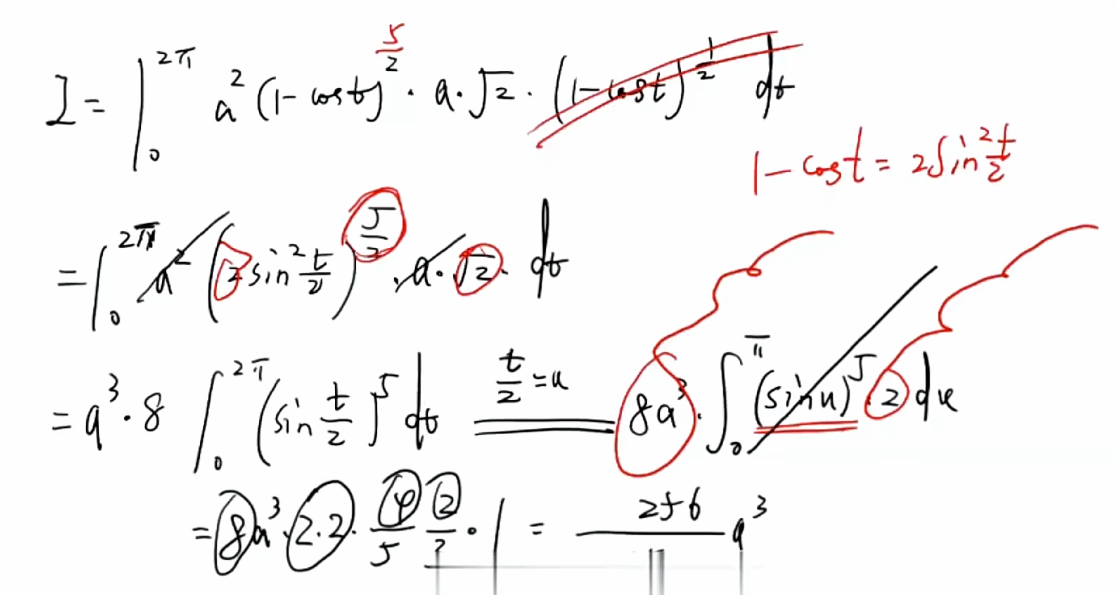 I = ∫₀^{2π} a² (1 - cos t)^{5/2} · a · √2 · (1 - cos t)^{1/2} dt
1 - cos t = 2 sin² t/2
= ∫₀^{2π} a² (2 sin² t/2)^{5/2} · a · √2 · dt
= a³ · 8 ∫₀^{2π} (sin t/2)⁵ dt  t/2 = u  8a³ · ∫₀^{π} (sin u)⁵ · 2 du
= 8a³ · 2 · 2 · 4/5 2/3 · 1 = 256/ a³